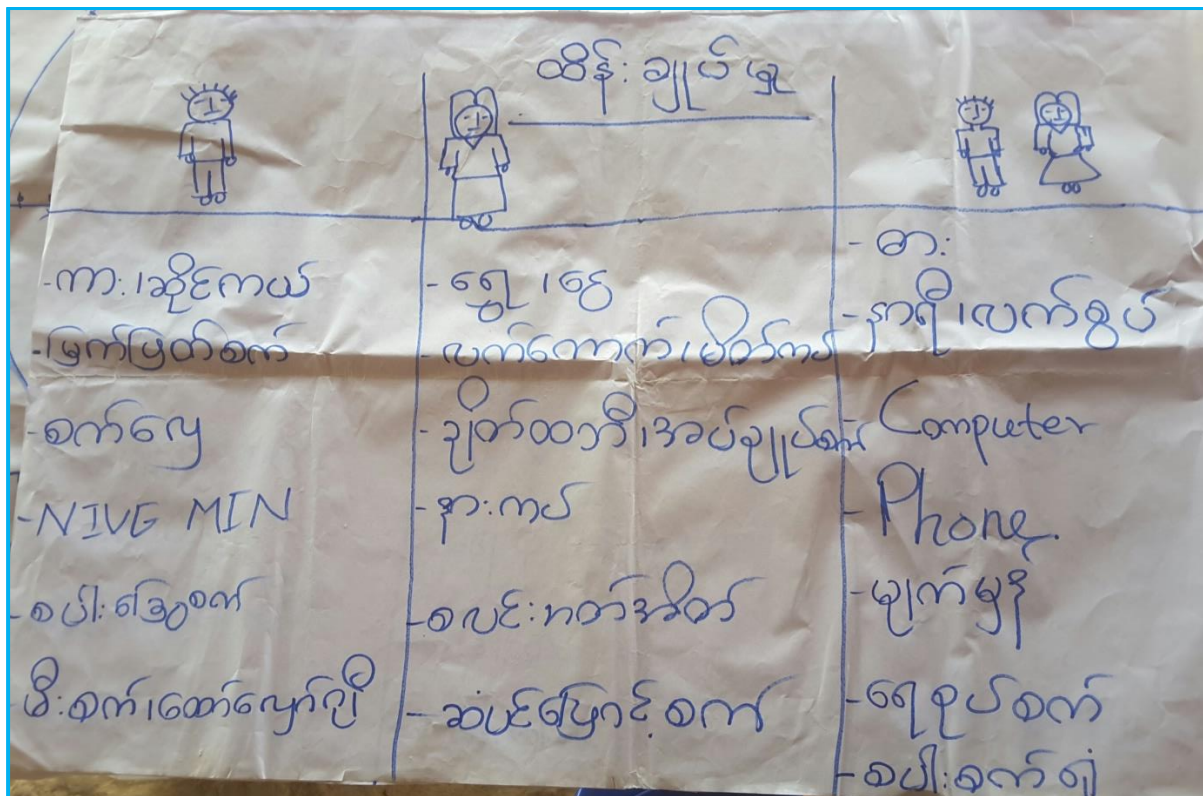 ထိန်းချုပ်မှု
-ကား၊ဆိုင်ကယ်
-မြက်ဖြတ်စက်
-စက်လှေ
-NIVG MIN
-စပါးခြွေစက်
-မီးစက်၊ထော်လျော်ဂျီ
-ရွှေ၊ငွေ
-လက်ကောက်၊မိတ်ကပ်
-ချိတ်ထဘီ၊အပ်ချုပ်စက်
-နားကပ်
-စလင်းဘတ်အိတ်
-ဆံပင်ဖြောင့်စက်
-ဓား
-နာရီ၊လက်စွပ်
-Computer
-Phone.
-မျက်မှန်
-ရေစုပ်စက်
-စပါး